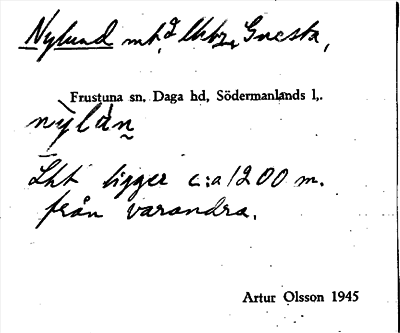 Nylund
Gnesta,
Frustuna sn, Daga hd, Södermanlands l,.
nỳlàn̰
Lht ligger c:a 1200 m.
från varandra.
Artur Olsson 1945